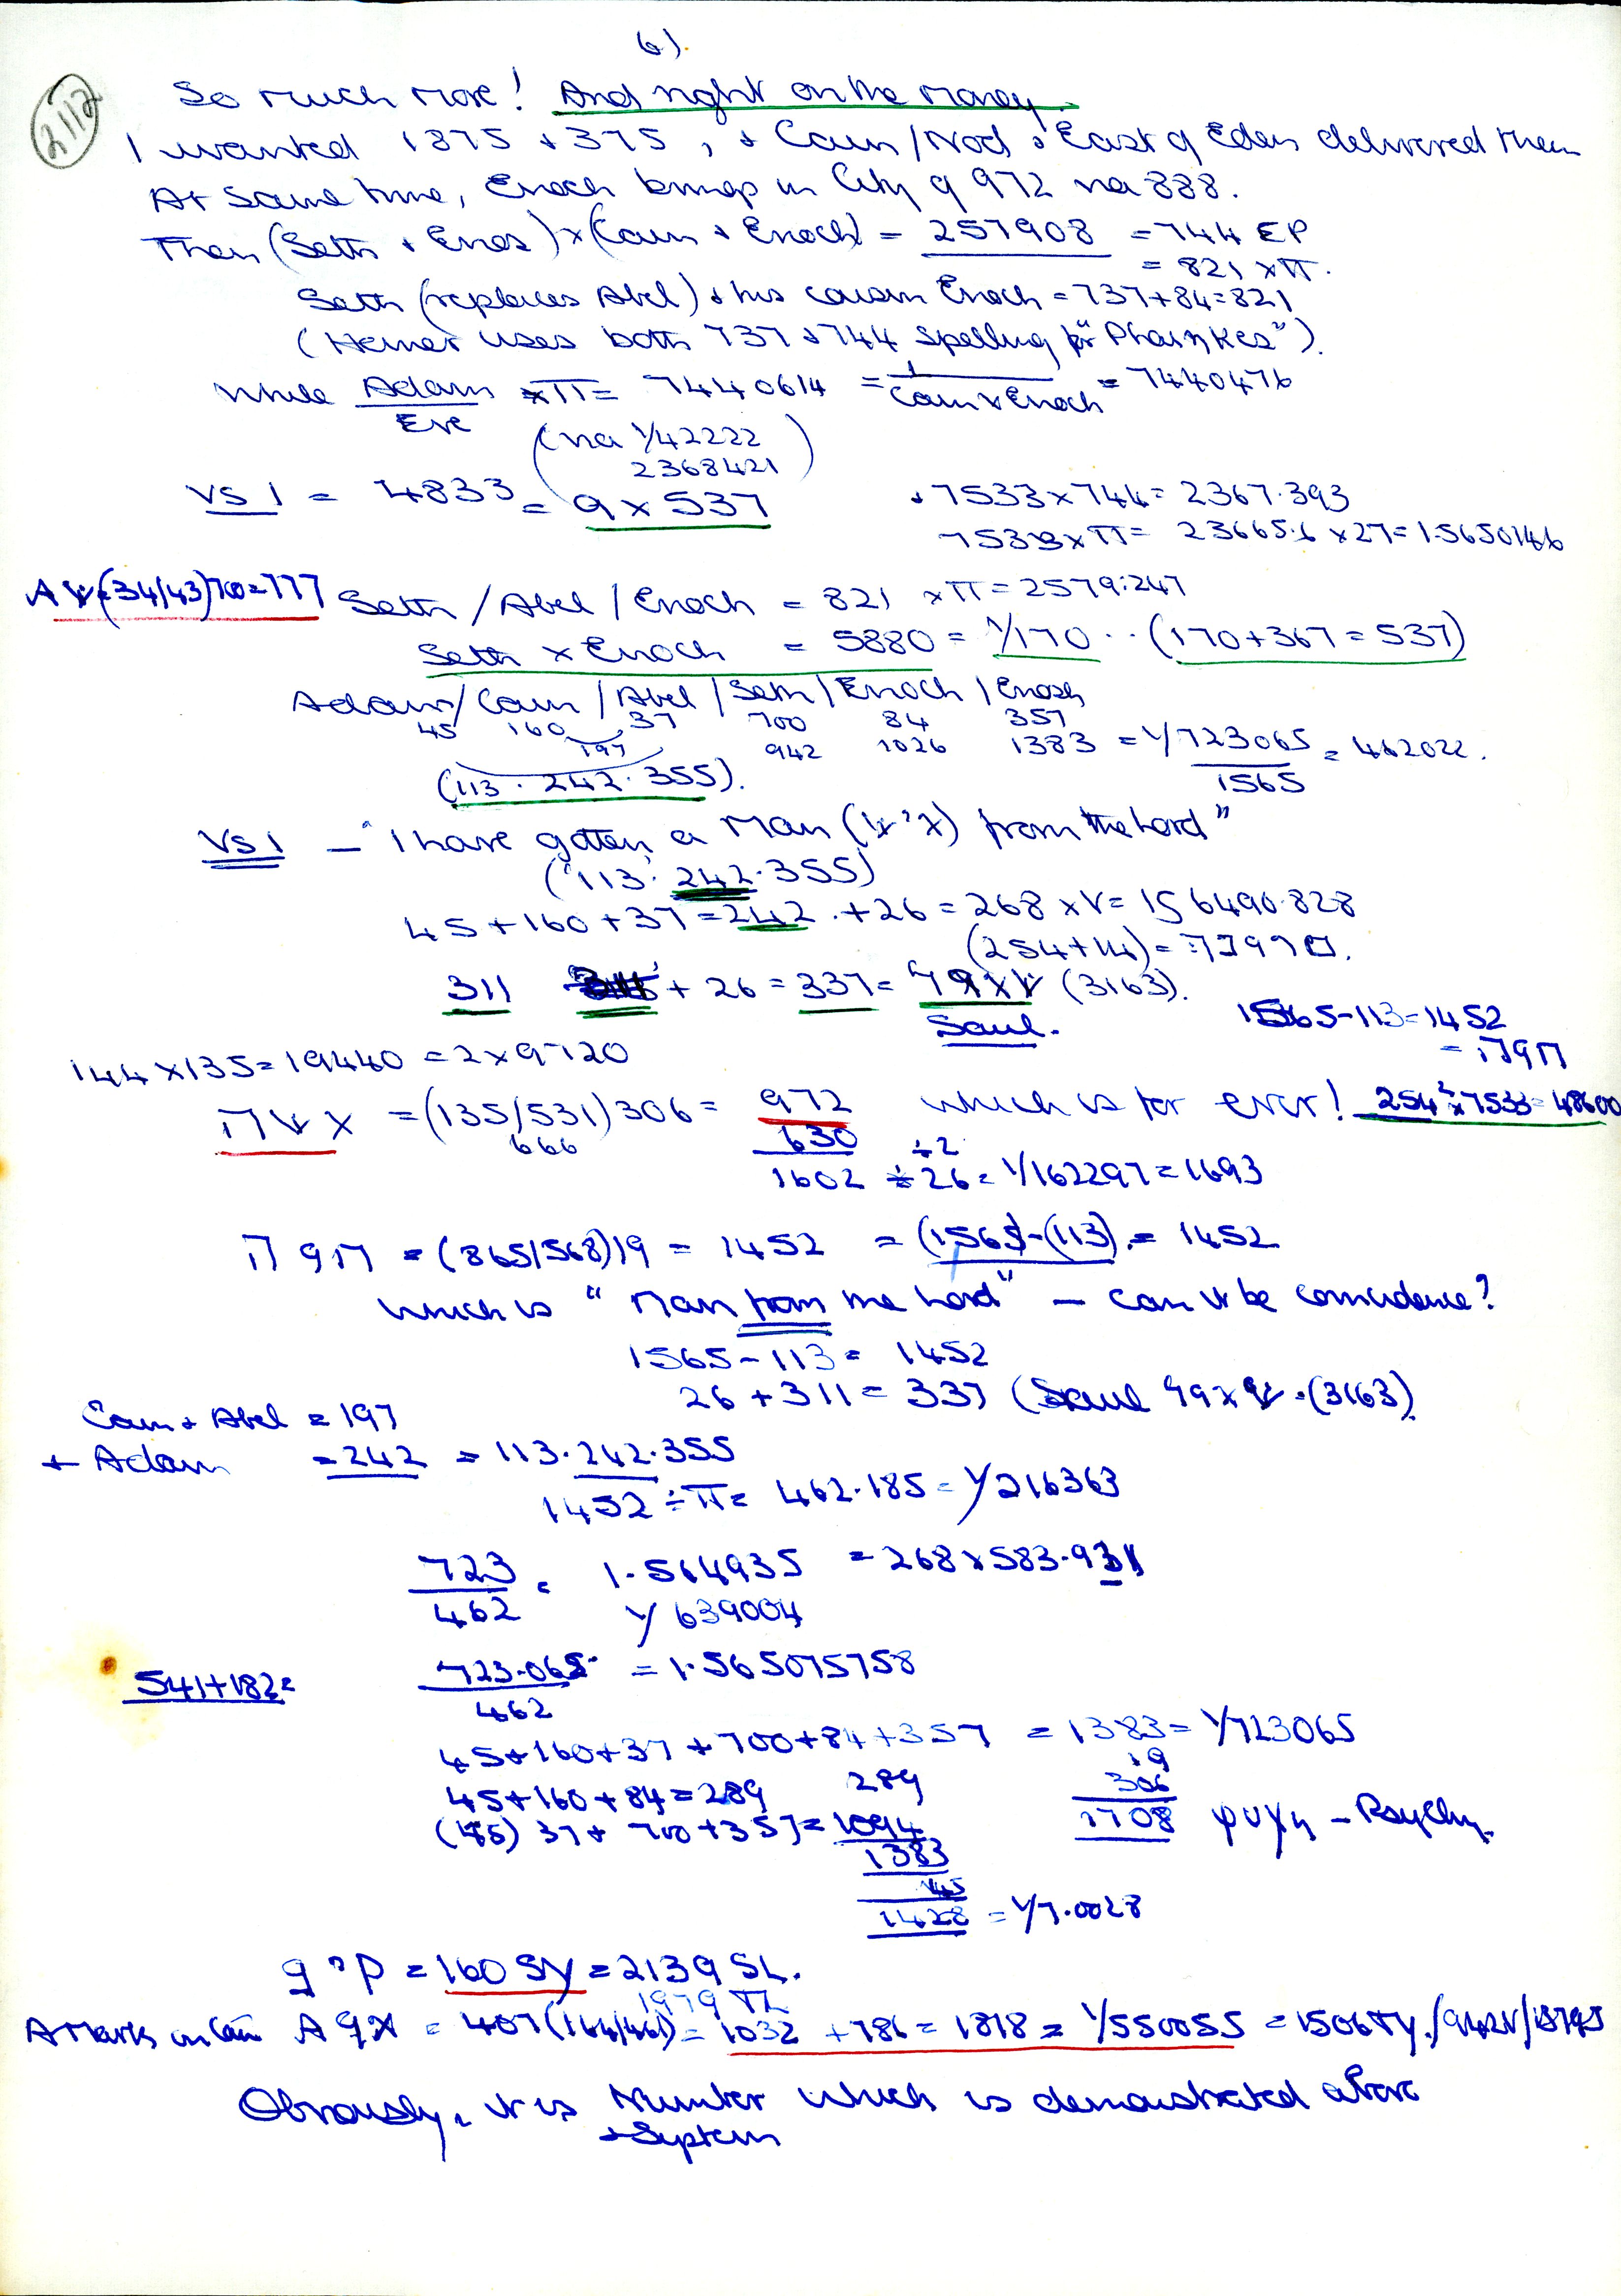 6).
2112
So much more! And right on the money.
I wanted 1875 + 375, + Cain/Nod + East of Eden delivered them
At same time, Enoch brings in City of 972 via 888.
Then (Seth + Enos) x (Cain + Enoch) = 257908 = 744 EP
= 821 x π.
Seth (replaces Abel) + his cousin Enoch = 737+84=821
(Homer uses both 737 + 744 spelling for "Phaiekes").
While Adam/Eve x π = 7440614 = 1/Cain x Enoch = 7440476
(via 1/42222
2368421)
VS 1 = 4833 = 9 x 537
+ 7533 x 744 = 2367.393
7533 x π = 23665.6 x 27 = 1.5650146
(34/43)700=777
Seth / Abel / Enoch = 821 x π = 2579.247
Seth x Enoch = 5880 = 1/170 .. (170+367=537)
Adam/Cain/Abel/Seth/Enoch/Enosh
45 160 37 700 84 357
197 942 1026 1383 = 1/723065 = 462022.
1565
(113.242.355).
VS 1 - "I have gotten a Man from the Lord"
(113.242.355)
45+160+37=242.+26=268 x V= 156490.828
(254+14)=
311 + 26 = 337 = (3163).
Saul.
1565-113=1452
144 x 135=19440 = 2x9720
= (135/531) 306 = 972 which is for ever! 254² x 7533=48600
666 630
1602 ÷26= 1/162297=1693
÷2
= (865/568)19 = 1452 = (1565)-(113).= 1452
which is "Man from the Lord" - can it be coincidence?
1565-113= 1452
26+311= 337 (Saul (3163).
Cain + Abel = 197
+ Adam = 242 = 113.242.355
1452 ÷ π= 462.185= 1/216363
723/462 = 1.564935 = 268 x 583.931
1/639004
541+182=
723.065/462 = 1.565075758
45+160+37+700+84+357 = 1383= 1/723065
19
45+160+84=289 289 306
(45) 37+700+357=1094 1708 ψυχη - Psyche.
1383
45
1428 = 1/7.0028
= 160 SY = 2139 SL.
1979 TL
A Mark on Cain = 407(164/461)= 1032 +786= 1818= 1/550055 = 1506
Obviously, it is Number which is demonstrated above
+ System